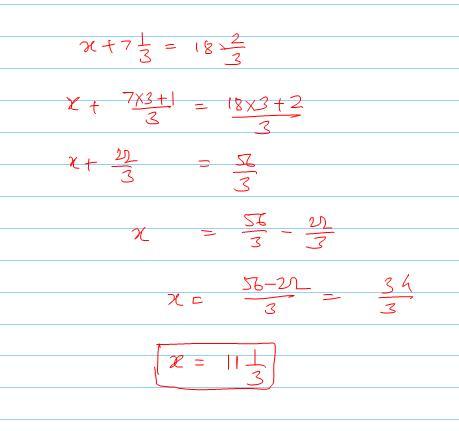 x + 7 1/3 = 18 2/3
x + (7×3+1)/3 = (18×3+2)/3
x + 22/3 = 56/3
x = 56/3 - 22/3
x = (56-22)/3 = 34/3
x = 11 1/3